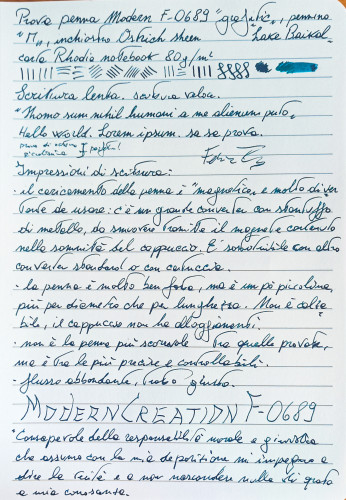 Prova penna Modern F-0689 "grafite", pennino
"M", inchiostro Ostrich sheen "Lake Baikal"
carta Rhodia notebook 80g/m²
Scrittura lenta. scrittura veloce.
"Homo sum nihil humani a me alienum puto"
Hello World. Lorem ipsum. se sa prova.
Impressioni di scrittura:
· il caricamento della penna è "magnetico" e molto diver
tente da usare: c'è un grande converter con stantuffo
di metallo, da smuovere tramite il magnete contenuto
nella sommità del cappuccio. È sostituibile con altro
converter standard o con cartuccia.
· la penna è molto ben fatta, ma è un pò piccolina,
più per diametro che per lunghezza. Non è calza
bile, il cappuccio non ha alloggiamenti.
· non è la penna più scorrevole tra quelle provate,
ma è tra le più precise e controllabili.
· flusso abbondante, tratto giusto.
MODERN CREATION F-0689
"Consapevole della responsabilità morale e giuridica
che assumo con la mia deposizione mi impegno a
dire la verità e a non nascondere nulla di quanto
a mia conoscenza.